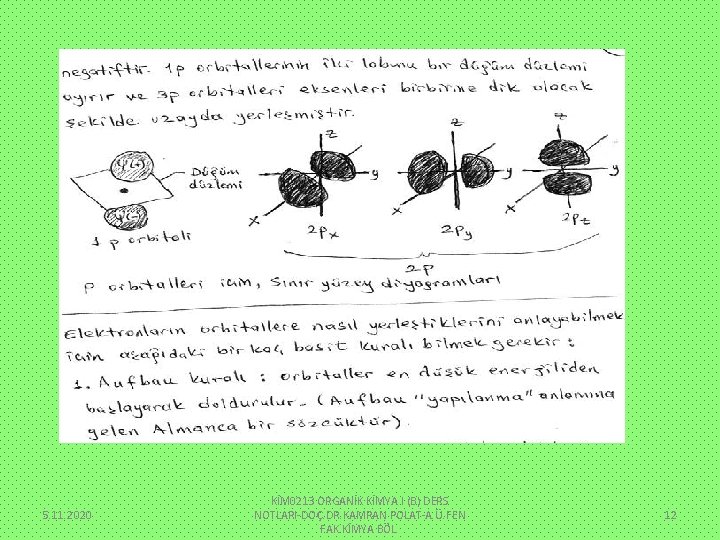 negatiftir. 1p orbitallerinin iki lobunu bir düğüm düzlemi
ayırır ve 3p orbitalleri eksenleri birbirine dik olacak
şekilde uzayda yerleşmiştir.
Ψ(+)
Düğüm
düzlemi
Ψ(-)
1 p orbitali
z
y
x
2px
z
y
x
2py
z
y
x
2pz
2p
p orbitalleri için, sınır yüzey diyagramları
Elektronların orbitallere nasıl yerleştiklerini anlayabilmek
için aşağıdaki bir kaç basit kuralı bilmek gerekir :
1. Aufbau kuralı : orbitaller en düşük enerjiliden
başlayarak doldurulur. (Aufbau "yapılanma" anlamına
gelen Almanca bir sözcüktür).
5.11.2020
KİM0213 ORGANİK KİMYA I (B) DERS
NOTLARI-DOÇ.DR.KAMRAN POLAT-A.Ü.FEN
FAK.KİMYA BÖL
12